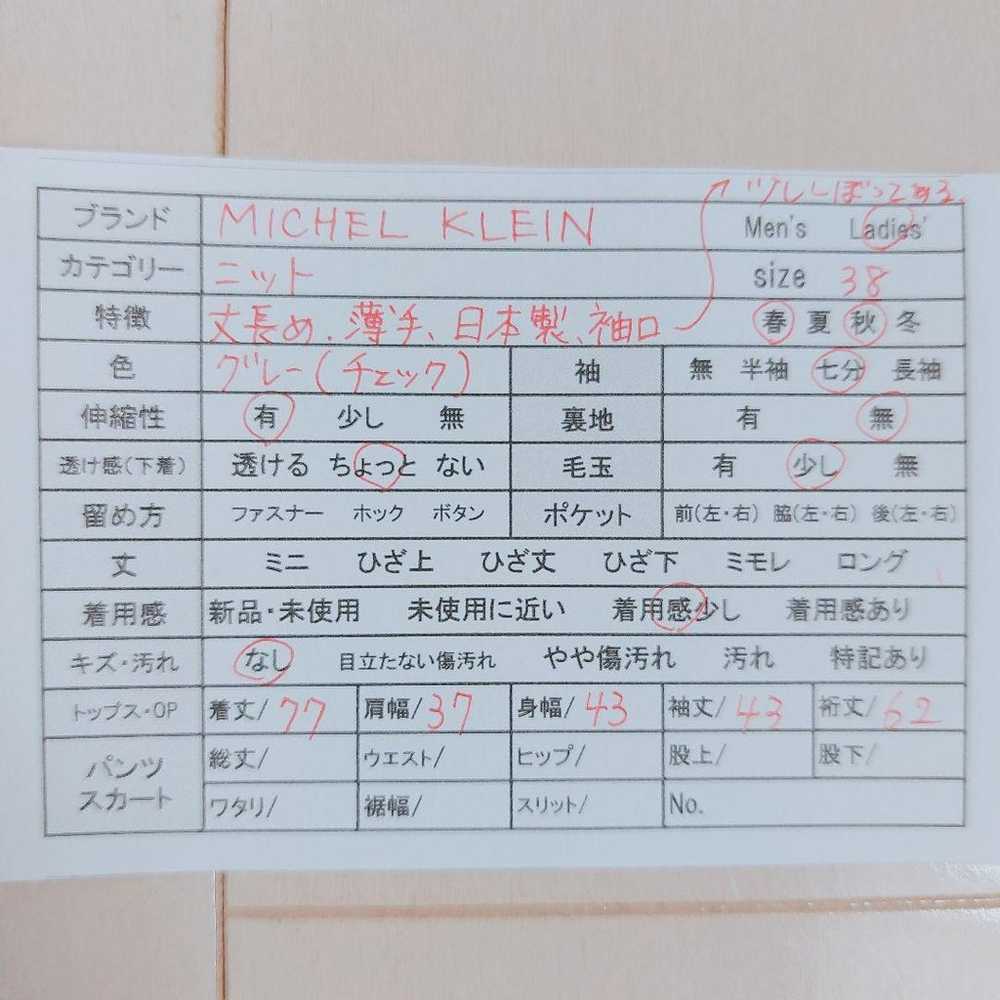 少ししぼってある。
ブランド MICHEL KLEIN Men's Ladies'
カテゴリー ニット size 38
特徴 丈長め、薄手、日本製、袖口 春 夏 秋 冬
色 グレー(チェック) 袖 無 半袖 七分 長袖
伸縮性 有 少し 無 裏地 有 無
透け感(下着) 透ける ちょっと ない 毛玉 有 少し 無
留め方 ファスナー ホック ボタン ポケット 前(左・右) 脇(左・右) 後(左・右)
丈 ミニ ひざ上 ひざ丈 ひざ下 ミモレ ロング
着用感 新品・未使用 未使用に近い 着用感少し 着用感あり
キズ・汚れ なし 目立たない傷汚れ やや傷汚れ 汚れ 特記あり
トップス・OP 着丈/77 肩幅/37 身幅/43 袖丈/43 裄丈/62
パンツ スカート 総丈/ ウエスト/ ヒップ/ 股上/ 股下/
ワタリ/ 裾幅/ スリット/ No.